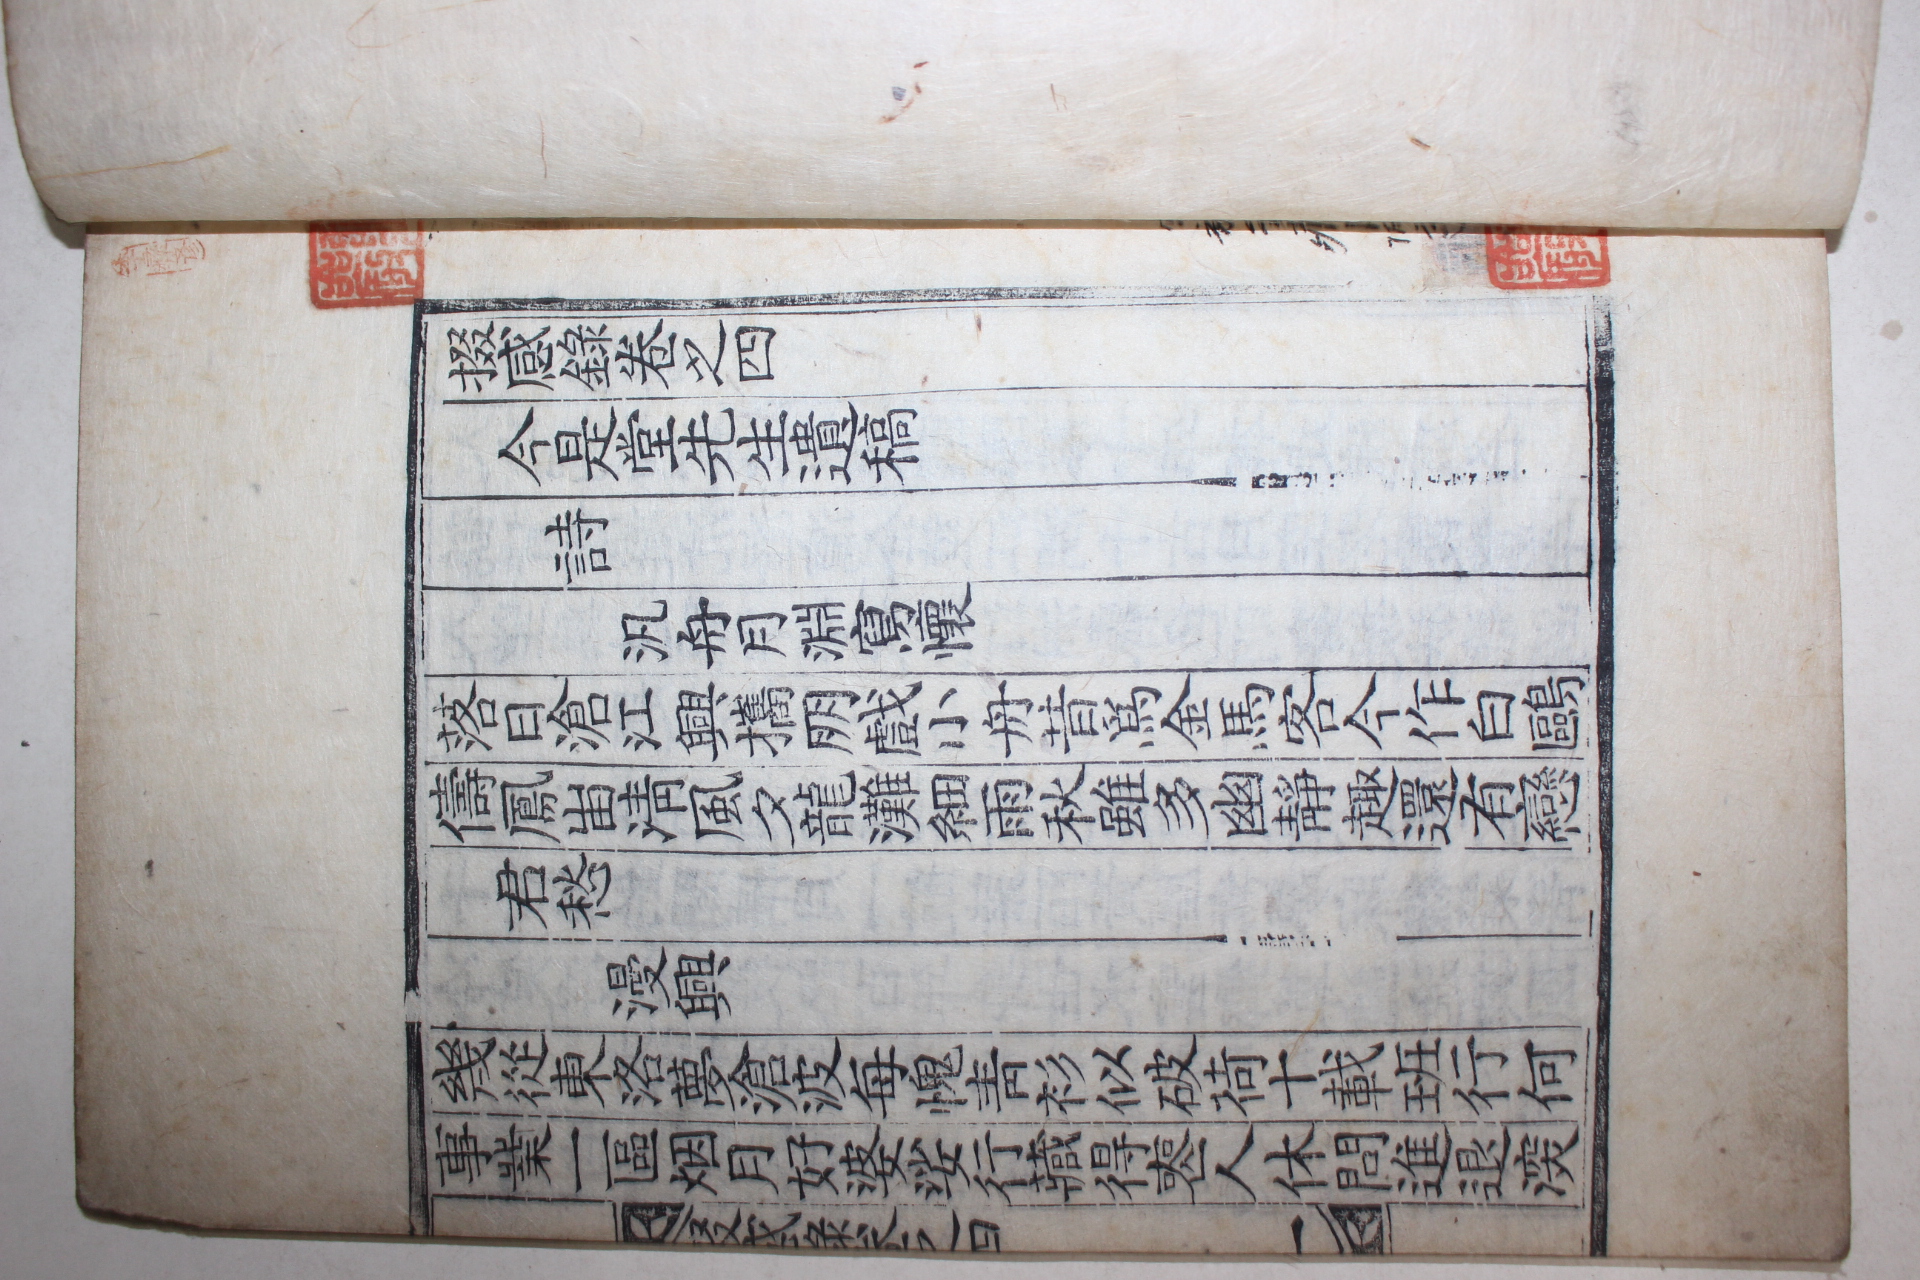 掇感錄卷之四
今是堂先生遺稿
詩
汎舟月淵寫懷
落日滄江興携朋戱小舟昔爲金馬客今作白鷗
儔鳳岀淸風夕龍灘細雨秋雖多幽靜趣還有戀
君愁
漫興
幾從東洛夢滄波每愧靑衫似破荷十載班行何
事業一區烟月好婆娑行藏得喪人休問進退深
掇感錄卷之四
一